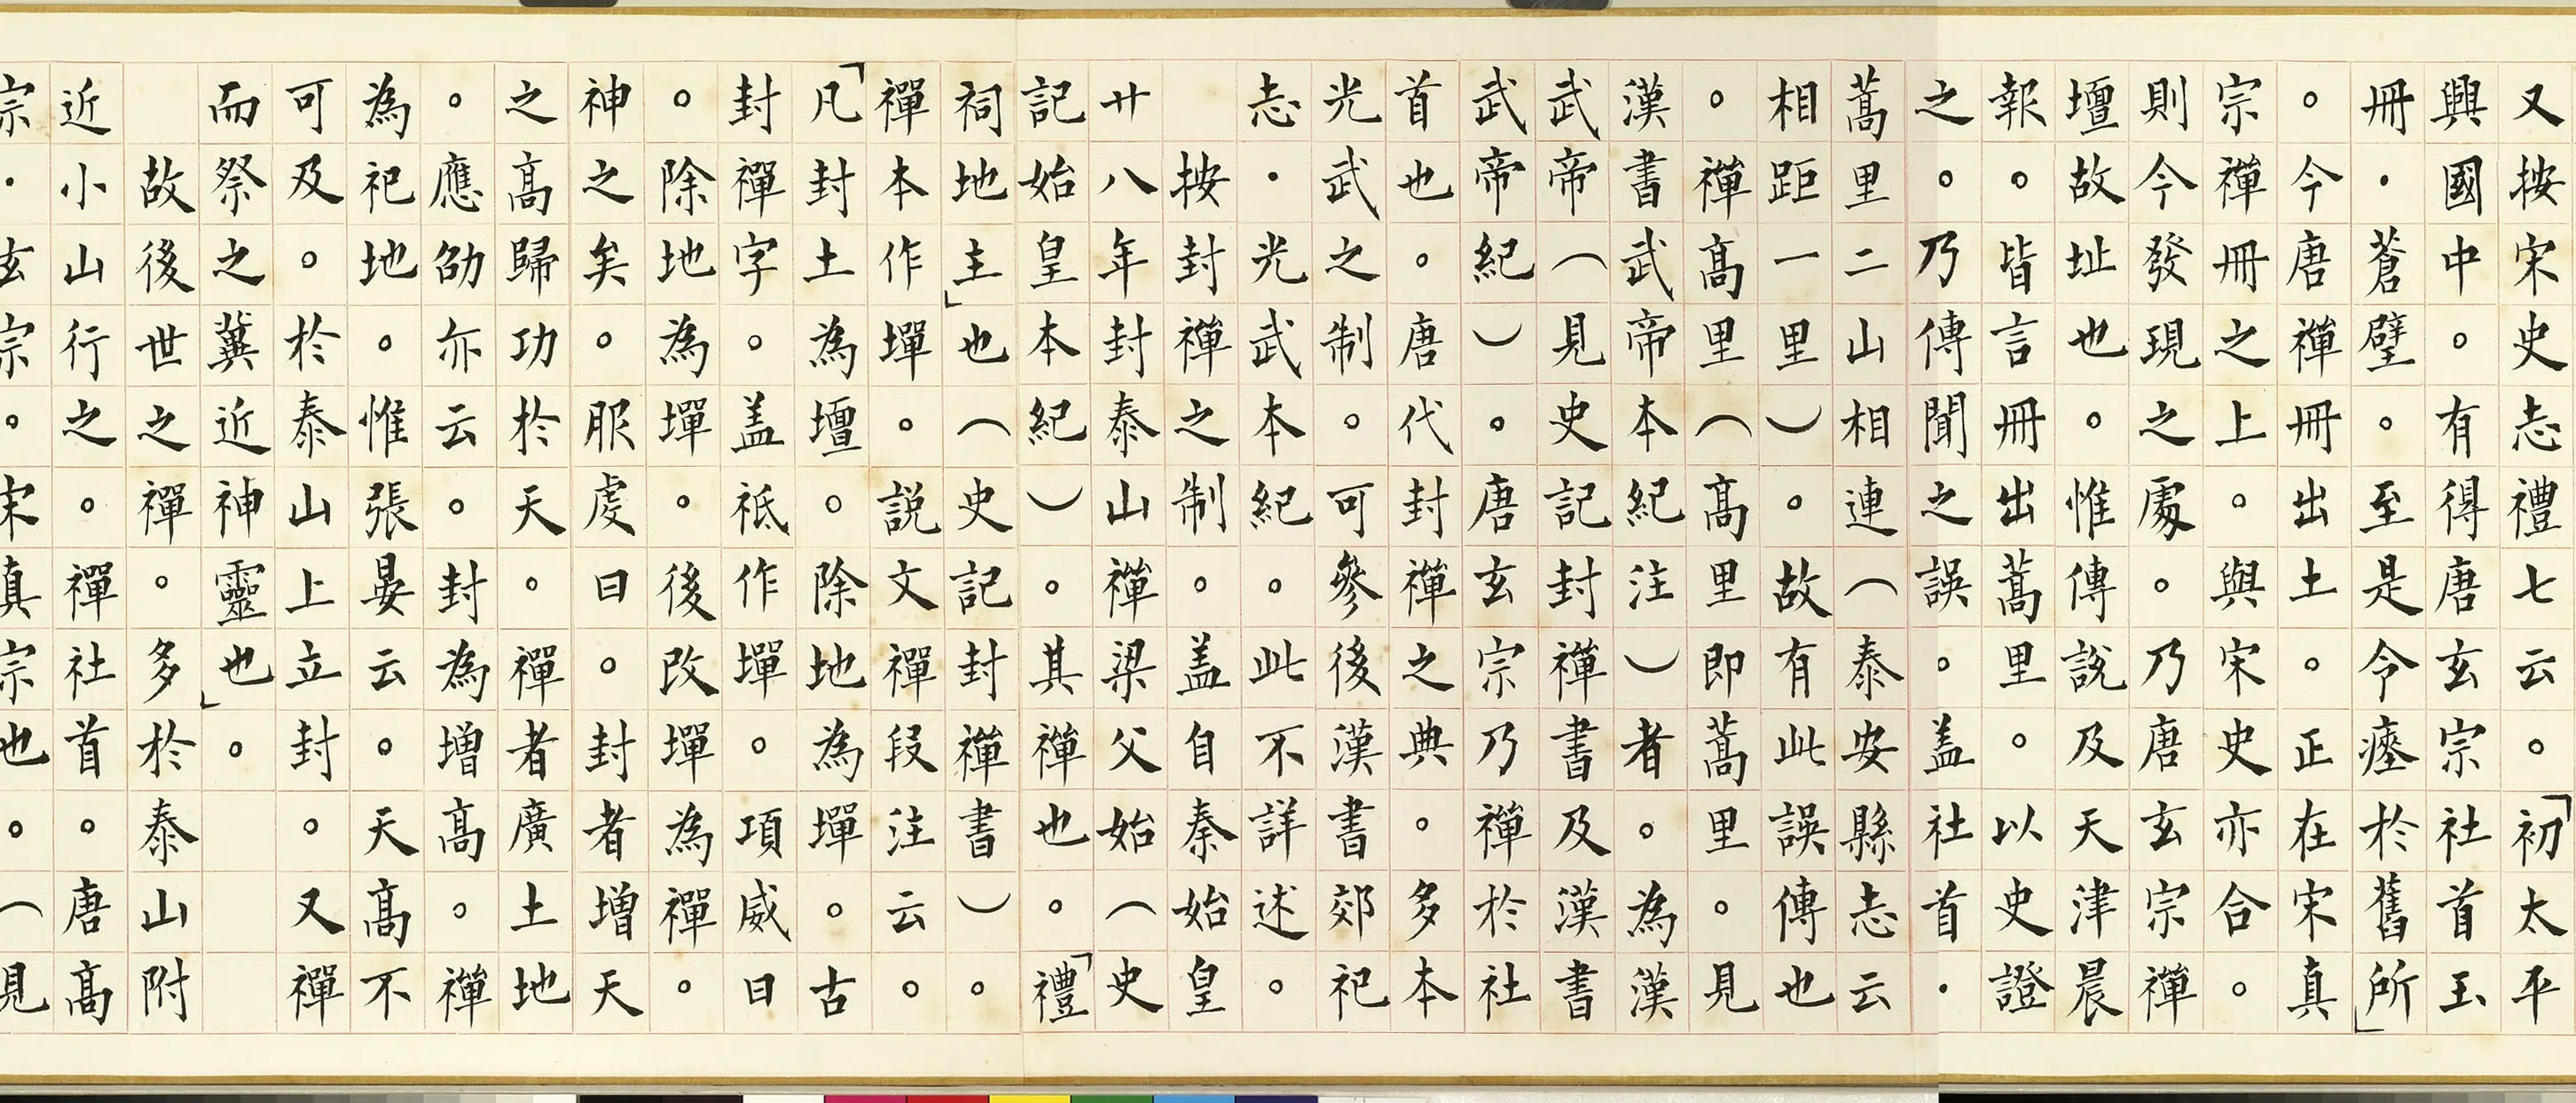 又按宋史志禮七云。「初太平
興國中。有得唐玄宗社首玉
冊・蒼璧。至是令瘞於舊所」
。今唐禪冊出土。正在宋真
宗禪冊之上。與宋史亦合。
則今發現之處。乃唐玄宗禪
壇故址也。惟傳說及天津晨
報。皆言冊出蒿里。以史證
之。乃傳聞之誤。蓋社首・
蒿里二山相連(泰安縣志云
相距一里)。故有此誤傳也
。禪高里(高里即蒿里。見
漢書武帝本紀注)者。為漢
武帝(見史記封禪書及漢書
武帝紀)。唐玄宗乃禪於社
首也。唐代封禪之典。多本
光武之制。可參後漢書郊祀
志・光武本紀。此不詳述。
按封禪之制。盖自秦始皇
廿八年封泰山禪梁父始(史
記始皇本紀)。其禪也。「禮
祠地主」也(史記封禪書)。
禪本作墠。說文禪段注云。
「凡封土為壇。除地為墠。古
封禪字。盖祗作墠。項威曰
。除地為墠。後改墠為禪。
神之矣。服虔曰。封者增天
之高歸功於天。禪者廣土地
。應劭亦云。封為增高。禪
為祀地。惟張晏云。天高不
可及。於泰山上立封。又禪
而祭之冀近神靈也」。
故後世之禪。多於泰山附
近小山行之。禪社首。唐高
宗・玄宗。宋真宗也。(見